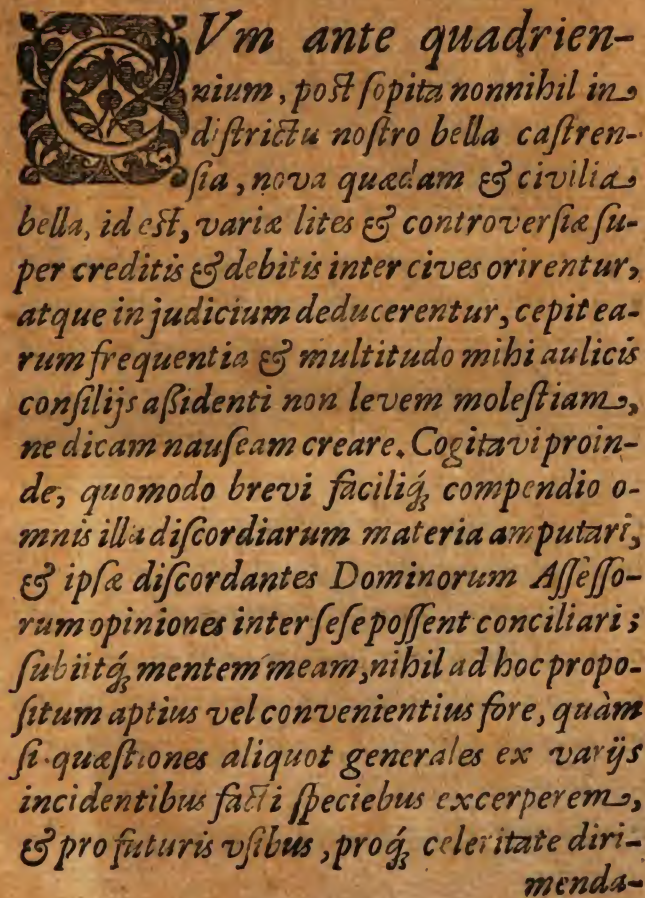 CVm ante quadrien-
nium, post sopita nonnihil in
districtu nostro bella castren-
sia, nova quædam & civilia
bella, id est, variæ lites & controversiæ su-
per creditis & debitis inter cives orirentur,
atque in judicium deducerentur, cepit ea-
rum frequentia & multitudo mihi aulicis
consilijs aßidenti non levem molestiam,
ne dicam nauseam creare. Cogitavi proin-
de, quomodo brevi faciliq́; compendio o-
mnis illa discordiarum materia amputari,
& ipsæ discordantes Dominorum Assesso-
rum opiniones inter sese possent conciliari;
subiitq́; mentem meam, nihil ad hoc propo-
situm aptius vel convenientius fore, quàm
si quæstiones aliquot generales ex varijs
incidentibus facti speciebus excerperem,
& pro futuris vsibus, proq́; celeritate diri-
menda-